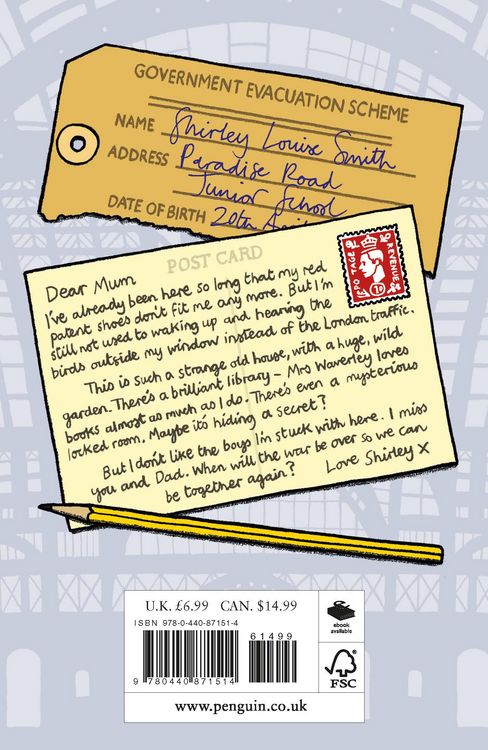 GOVERNMENT EVACUATION SCHEME
NAME Shirley Louise Smith
ADDRESS Paradise Road
Junior School
DATE OF BIRTH 20th
POST CARD
POSTAGE REVENUE
1D
Dear Mum
I've already been here so long that my red
patent shoes don't fit me any more. But I'm
still not used to waking up and hearing the
birds outside my window instead of the London traffic.
This is such a strange old house, with a huge, wild
garden. There's a brilliant library - Mrs Waverley loves
books almost as much as I do. There's even a mysterious
locked room. Maybe it's hiding a secret?
But I don't like the boys I'm stuck with here. I miss
you and Dad. When will the war be over so we can
be together again?
Love Shirley X
U.K. £6.99 CAN. $14.99
ISBN 978-0-440-87151-4
61499
9 780440 871514
ebook
available
FSC
www.penguin.co.uk